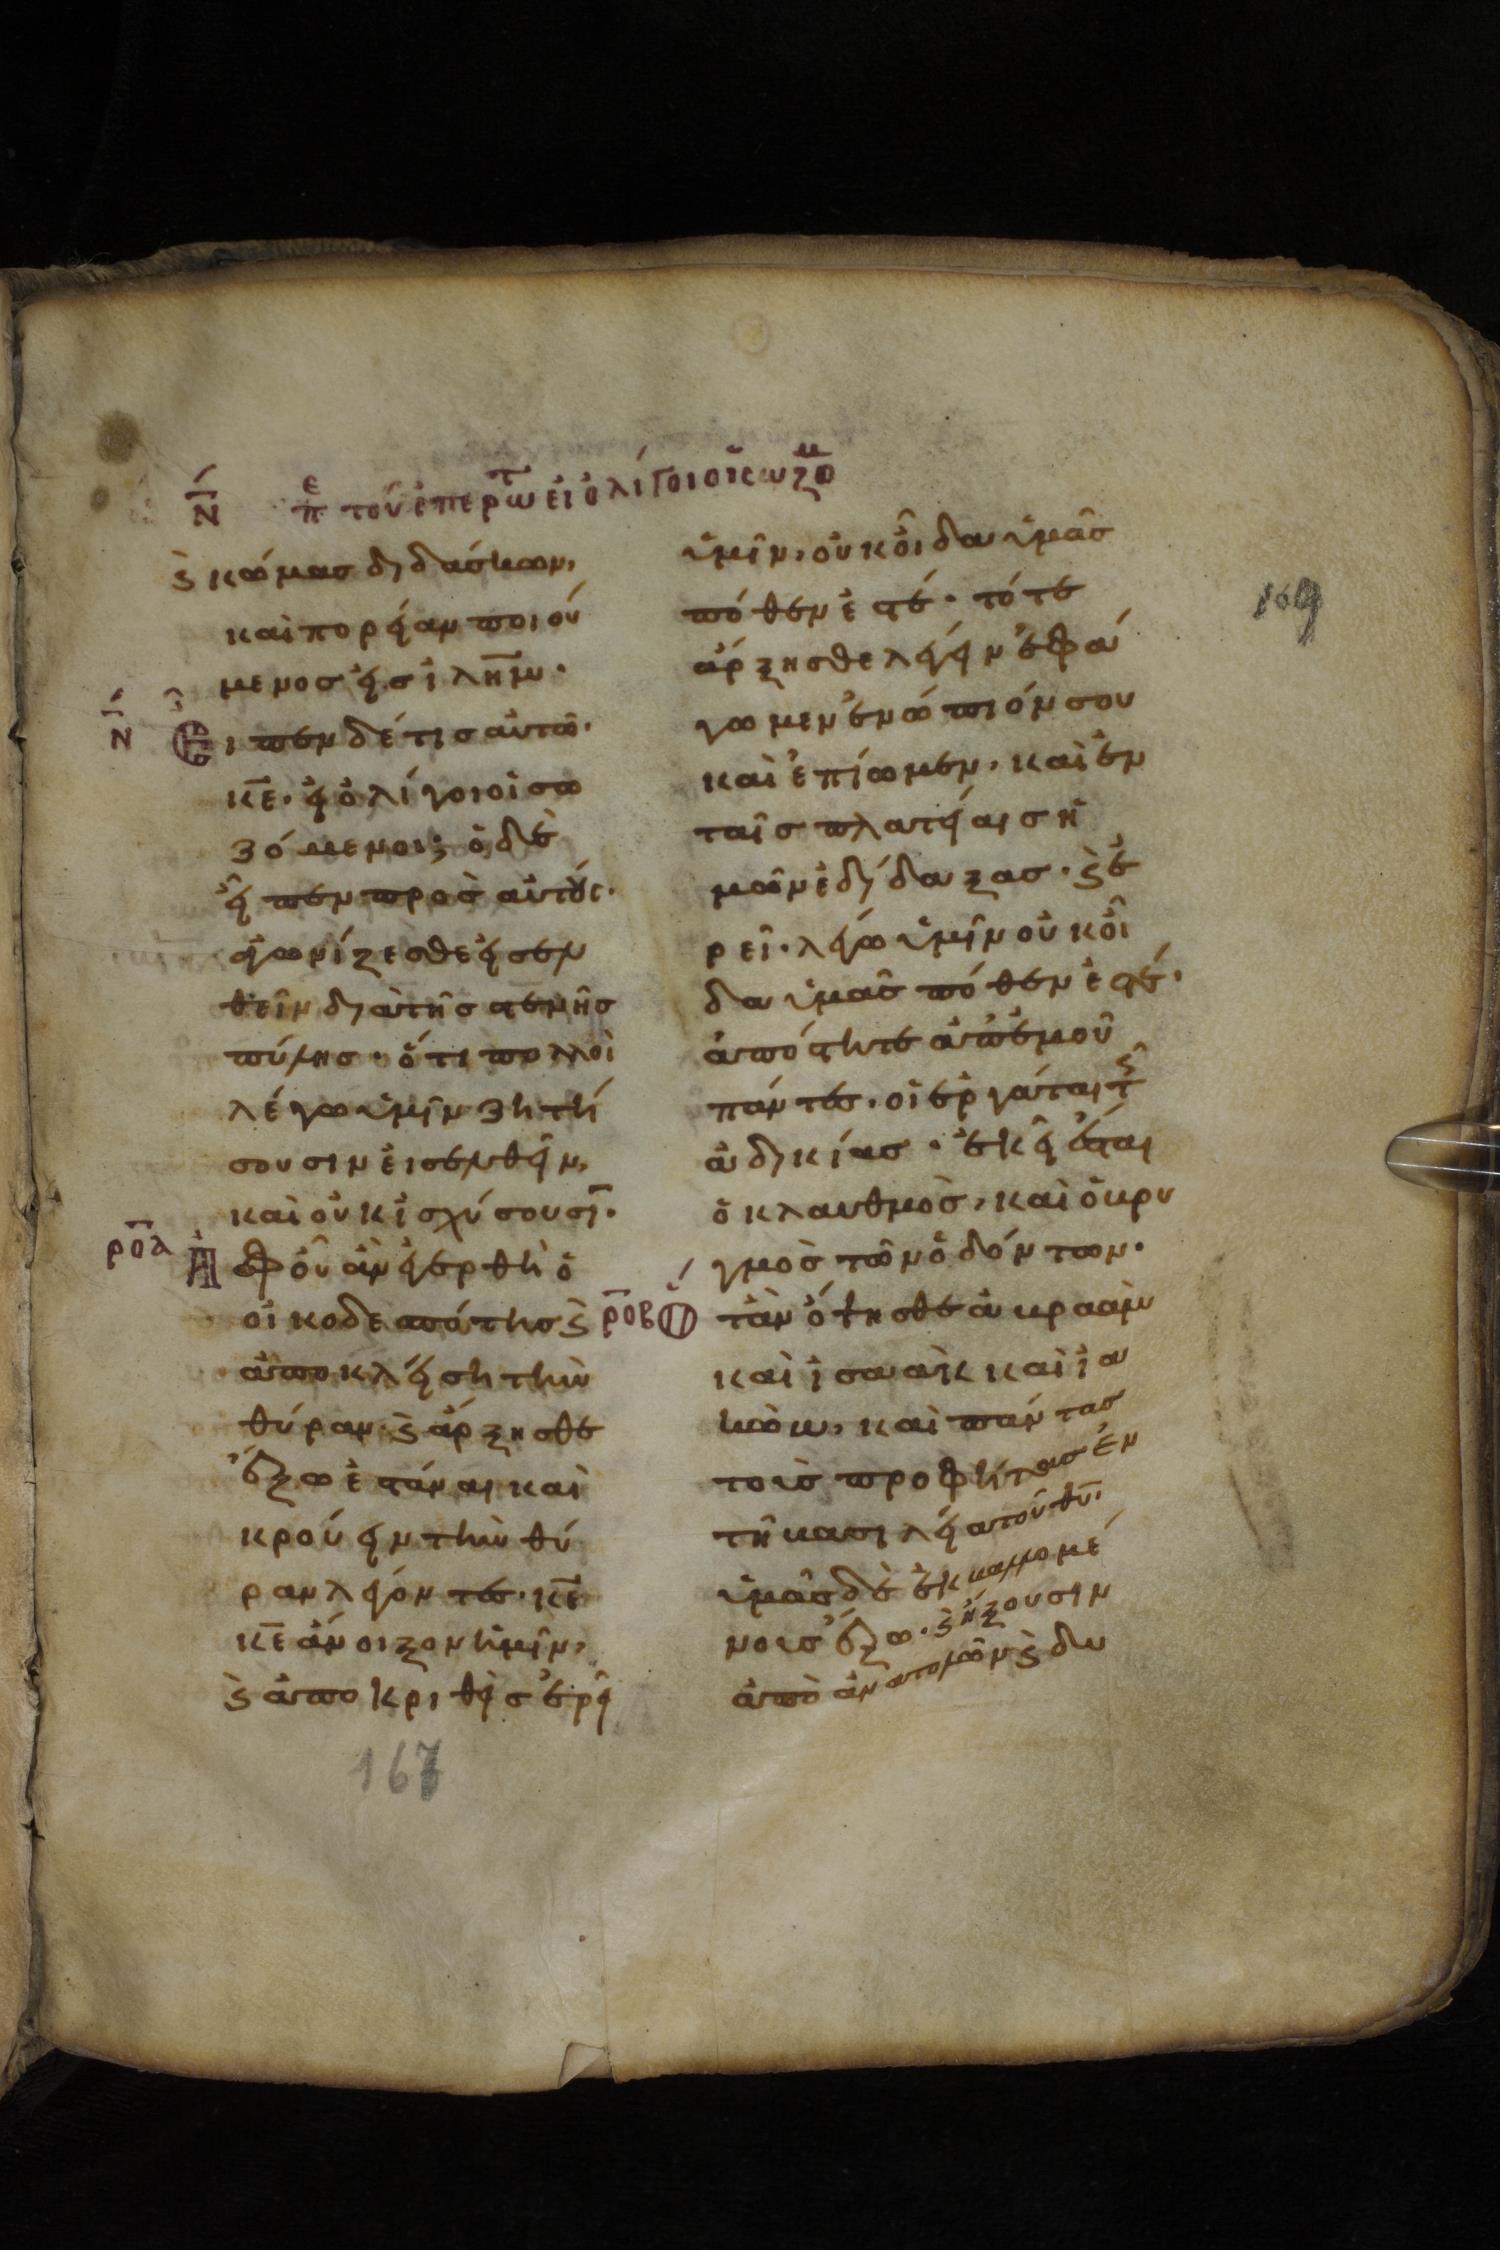 ν̅ πε τοῦ ἐπερωτ εἰ ὀλίγοι οἱ σωζομ
ϗ κώμας διδάσκων,
καὶ πορείαν ποιού
μενος εἰς ιλημ·
ν̅ Εἶπεν δέ τις αὐτῶ·
κε· εἰ ὀλίγοι οἱ σω
ζόμενοι; ὁ δὲ
εἶπεν πρὸς αὐτούς·
ἀγωνίζεσθε εἰσελ
θεῖν διὰ τῆς στενῆς
πύλης· ὅτι πολλοὶ
λέγω ὑμῖν ζητή
σουσιν εἰσελθεῖν,
καὶ οὐκ ἰσχύσουσι·
ροα Ἀφ οὗ ἂν ἐγερθῆ ὁ
οἰκοδεσπότης ϗ
ἀποκλείση τὴν
θύραν· ϗ ἄρξησθε
ἔξω ἑστάναι καὶ
κρούειν τὴν θύ
ραν λέγοντες· κε
κε ἄνοιξον ἡμῖν,
ϗ ἀποκριθεὶς ἐρεῖ
167
ὑμῖν, οὐκ οἶδα ὑμᾶς
πόθεν ἐστέ· τότε
ἄρξησθε λέγειν ἐφά
γωμεν ἐνώπιόν σου
καὶ ἐπίωμεν, καὶ ἐν
ταῖς πλατείαις ἡ
μῶν ἐδίδαξας· ϗ ἐ
ρεῖ· λέγω ὑμῖν οὐκ οἶ
δα ὑμᾶς πόθεν ἐστέ·
ἀπόστητε ἀπ ἐμοῦ
πάντες, οἱ ἐργάται τῆς
ἀδικίας· ἐκεῖ ἔσται
ὁ κλαυθμὸς, καὶ ὁ βρυ
γμὸς τῶν ὀδόντων·
ροβ Ὅταν ὄψησθε ἀβραὰμ
καὶ ἰσαὰκ καὶ ἰα
κὼβ, καὶ πάντας
τοὺς προφήτας ἐν
τῆ βασιλεία τοῦ θυ,
ὑμᾶς δὲ ἐκβαλλομέ
νους ἔξω· ϗ ἥξουσιν
ἀπὸ ἀνατολῶν ϗ δυ
169